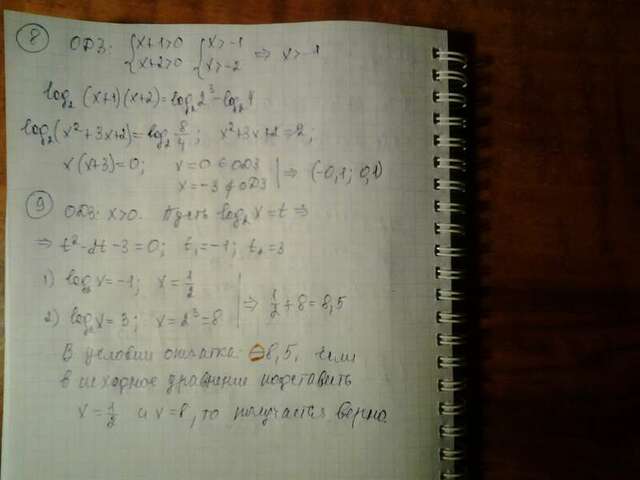 8 ОДЗ: { x+1>0 { x>-1 ⇒ x>-1
{ x+2>0 { x>-2
log₂ (x+1)(x+2)=log₂2³-log₂4
log₂(x²+3x+2)=log₂ 8/4; x²+3x+2=2;
x(x+3)=0; x=0 ∈ ОДЗ | ⇒ (-0,1; 0,1)
x=-3 ∉ ОДЗ
9 ОДЗ: x>0. Пусть log₂ x=t ⇒
⇒ t²-2t-3=0; t₁=-1; t₂=3
1) log₂x=-1; x=1/2 | ⇒ 1/2+8=8,5
2) log₂x=3; x=2³=8
В условии опечатка: 8,5, если
в исходное уравнение подставить
x=1/2 и x=8, то получается верно.